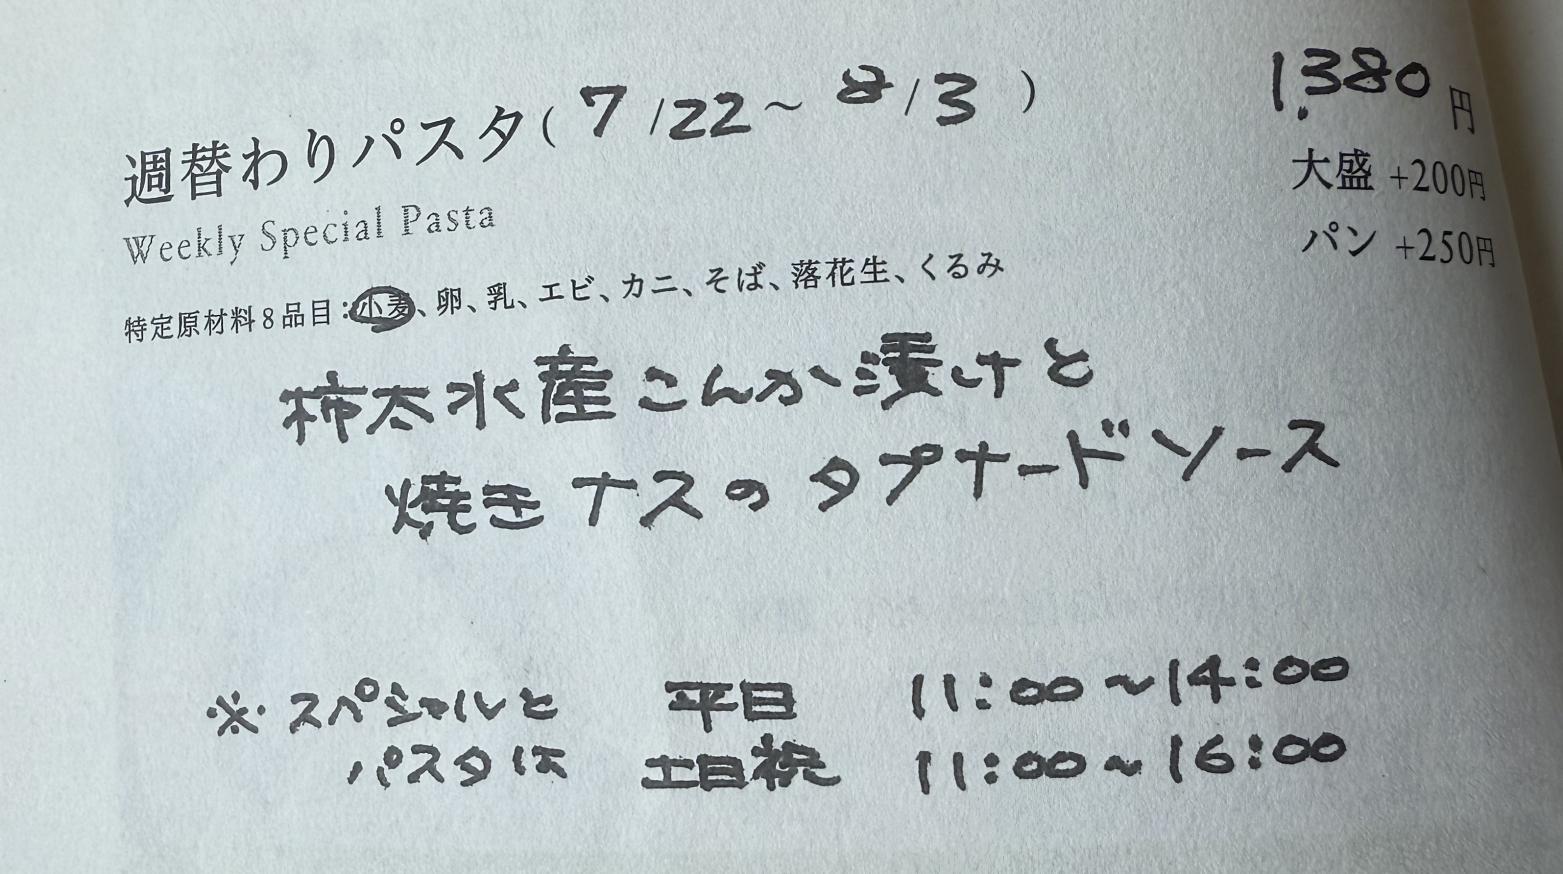 週替わりパスタ( 7/22～8/3 )
1,380円
大盛 +200円
パン +250円
Weekly Special Pasta
特定原材料8品目：小麦、卵、乳、エビ、カニ、そば、落花生、くるみ
柿太水産こんか漬けと
焼きナスのタプナードソース
※スペシャルと 平日 11:00～14:00
パスタは 土日祝 11:00～16:00